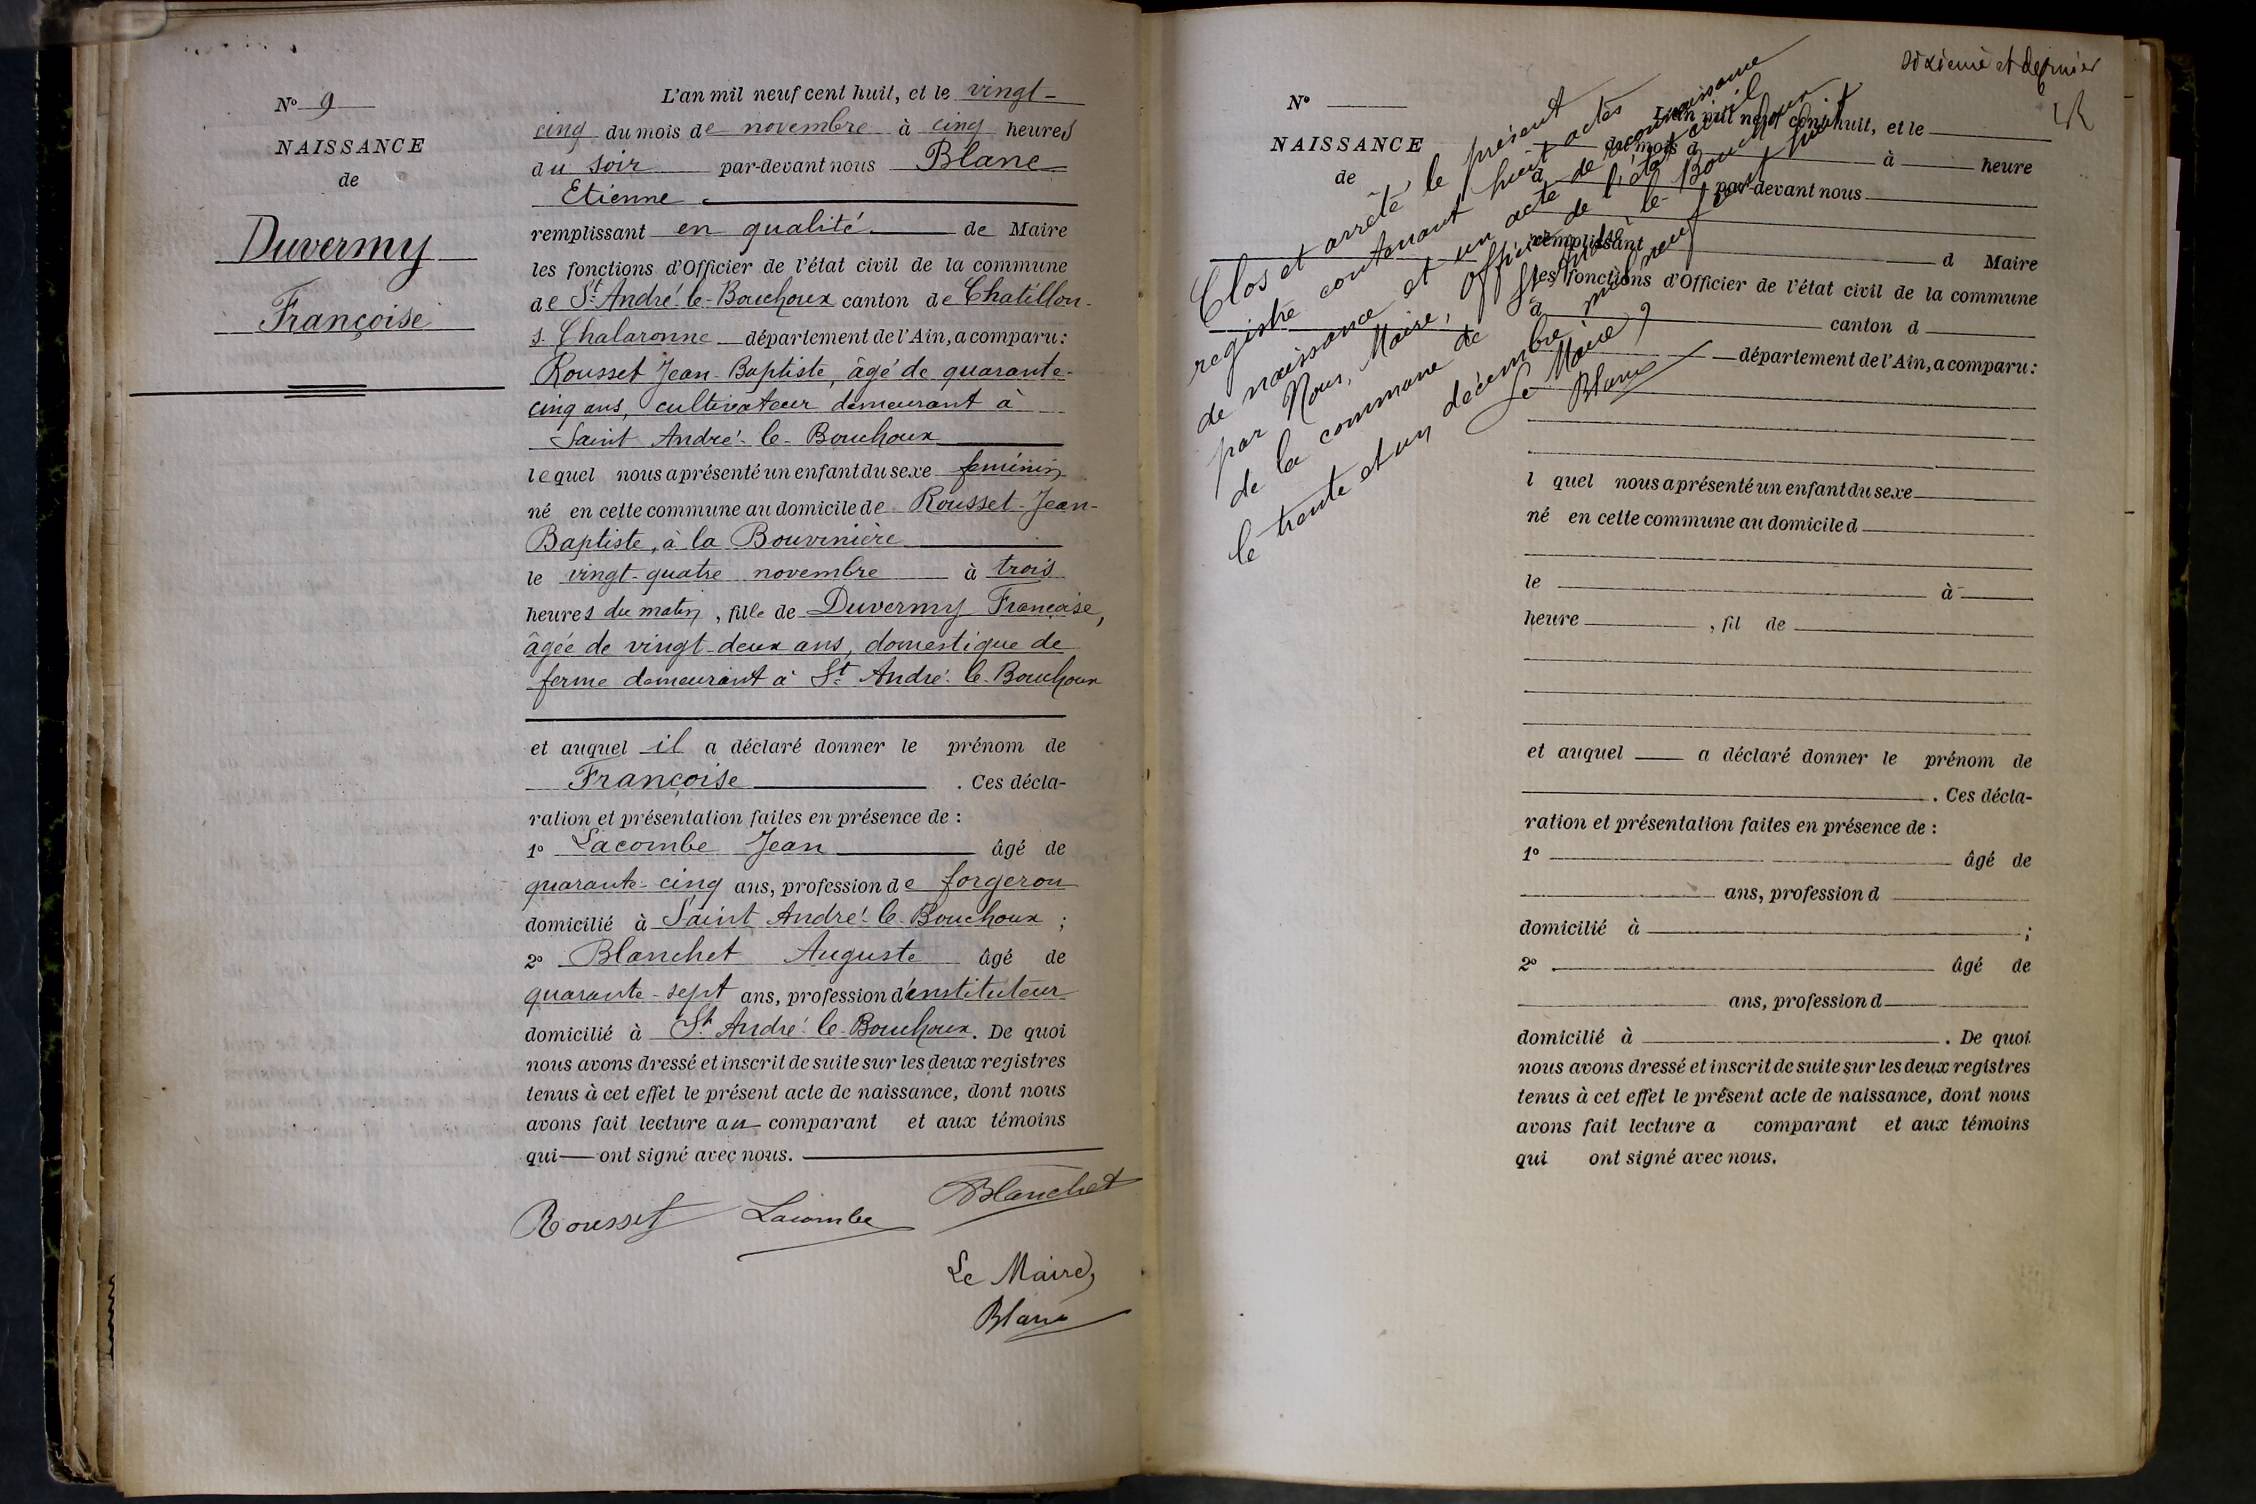 N° 9
NAISSANCE
de
Duvermy
Françoise
L'an mil neuf cent huit, et le vingt-
cinq du mois de novembre à cinq heures
du soir par-devant nous Blanc
Etienne
remplissant en qualité de Maire
les fonctions d'Officier de l'état civil de la commune
de St André-le-Bouchoux canton de Chatillon-
s-Chalaronne département de l'Ain, a comparu :
Rousset Jean-Baptiste, âgé de quarante-
cinq ans, cultivateur demeurant à
Saint André-le-Bouchoux
lequel nous a présenté un enfant du sexe feminin
né en cette commune au domicile de Rousset Jean-
Baptiste, à la Bouvinière
le vingt-quatre novembre à trois
heures du matin, fille de Duvermy Françoise,
âgée de vingt-deux ans, domestique de
ferme demeurant à St André-le-Bouchoux
et auquel il a déclaré donner le prénom de
Françoise . Ces décla-
ration et présentation faites en présence de :
1° Lacombe Jean âgé de
quarante-cinq ans, profession de forgeron
domicilié à Saint André-le-Bouchoux ;
2° Blanchet Auguste âgé de
quarante-sept ans, profession d'instituteur
domicilié à St André-le-Bouchoux. De quoi
nous avons dressé et inscrit de suite sur les deux registres
tenus à cet effet le présent acte de naissance, dont nous
avons fait lecture au comparant et aux témoins
qui ont signé avec nous.
Rousset Lacombe Blanchet
Le Maire,
Blanc
sixième et dernier
N°
NAISSANCE
de
Clos et arrêté le présent
registre contenant huit actes
de naissance et un acte de reconnaissance
par Nous, Maire, officier de l'état civil
de la commune de St André-le-Bouchoux
le trente et un décembre mil neuf cent huit
Le Maire,
Blanc
L'an mil neuf cent huit, et le
du mois d à heure
par-devant nous
remplissant d Maire
les fonctions d'Officier de l'état civil de la commune
d canton d
département de l'Ain, a comparu :
l quel nous a présenté un enfant du sexe
né en cette commune au domicile d
le à
heure , fil de
et auquel a déclaré donner le prénom de
. Ces décla-
ration et présentation faites en présence de :
1° âgé de
ans, profession d
domicilié à ;
2° âgé de
ans, profession d
domicilié à . De quoi
nous avons dressé et inscrit de suite sur les deux registres
tenus à cet effet le présent acte de naissance, dont nous
avons fait lecture a comparant et aux témoins
qui ont signé avec nous.